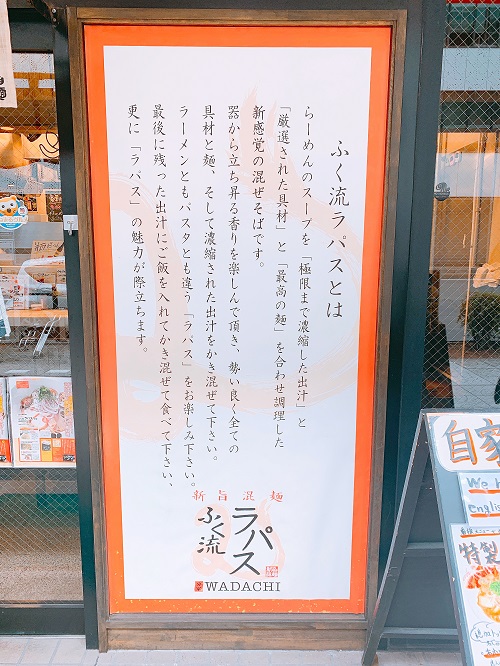 ふく流ラパスとは
らーめんのスープを「極限まで濃縮した出汁」と
「厳選された具材」と「最高の麺」を合わせ調理した
新感覚の混ぜそばです。
器から立ち昇る香りを楽しんで頂き、勢い良く全ての
具材と麺、そして濃縮された出汁をかき混ぜて下さい。
ラーメンともパスタとも違う「ラパス」をお楽しみ下さい。
最後に残った出汁にご飯を入れてかき混ぜて食べて下さい、
更に「ラパス」の魅力が際立ちます。
新旨混麺
ラパス
ふく流
WADACHI
自家
We h
english
特製